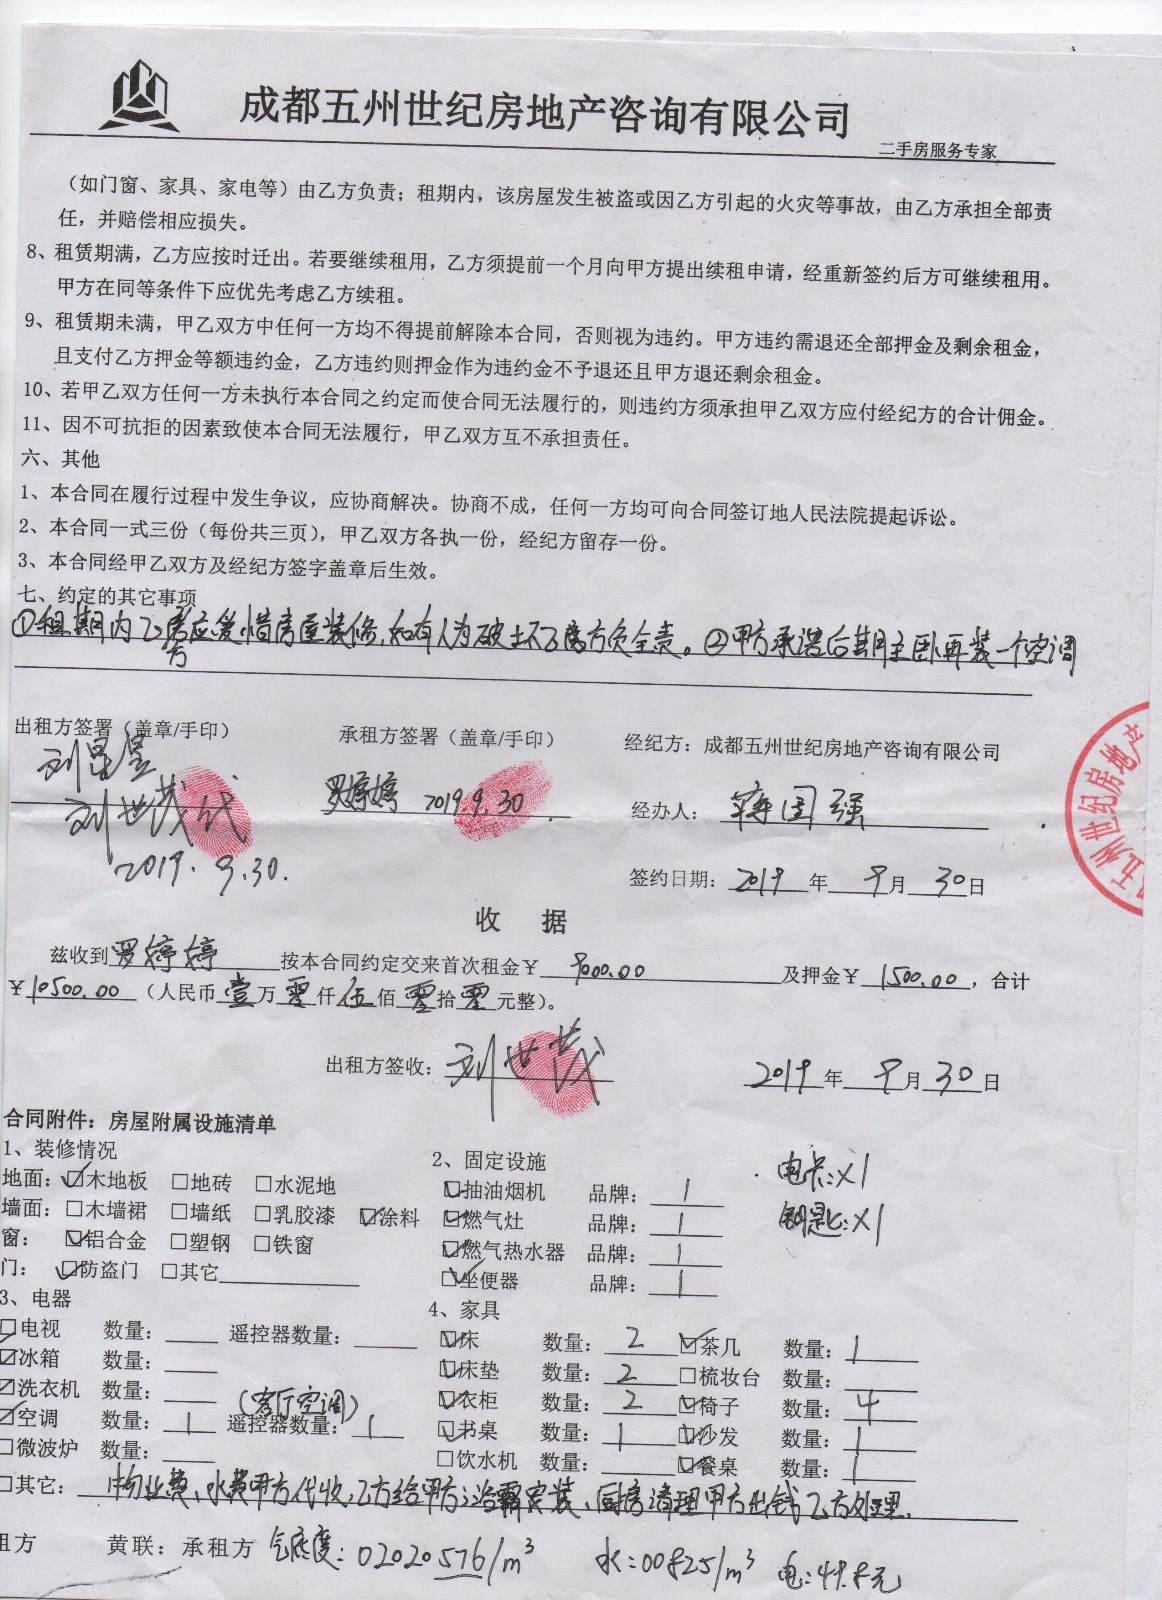 成都五州世纪房地产咨询有限公司
二手房服务专家
（如门窗、家具、家电等）由乙方负责；租期内，该房屋发生被盗或因乙方引起的火灾等事故，由乙方承担全部责
任，并赔偿相应损失。
8、租赁期满，乙方应按时迁出。若要继续租用，乙方须提前一个月向甲方提出续租申请，经重新签约后方可继续租用。
甲方在同等条件下应优先考虑乙方续租。
9、租赁期未满，甲乙双方中任何一方均不得提前解除本合同，否则视为违约。甲方违约需退还全部押金及剩余租金，
且支付乙方押金等额违约金，乙方违约则押金作为违约金不予退还且甲方退还剩余租金。
10、若甲乙双方任何一方未执行本合同之约定而使合同无法履行的，则违约方须承担甲乙双方应付经纪方的合计佣金。
11、因不可抗拒的因素致使本合同无法履行，甲乙双方互不承担责任。
六、其他
1、本合同在履行过程中发生争议，应协商解决。协商不成，任何一方均可向合同签订地人民法院提起诉讼。
2、本合同一式三份（每份共三页），甲乙双方各执一份，经纪方留存一份。
3、本合同经甲乙双方及经纪方签字盖章后生效。
七、约定的其它事项
①租期内乙方应爱惜房屋装修，如有人为破坏乙方负全责。②甲方承诺后期主卧再装一个空调
出租方签署（盖章/手印） 承租方签署（盖章/手印） 经纪方：成都五州世纪房地产咨询有限公司
刘星昱
刘世茂代 罗婷婷 2019.9.30 经办人：蒋国强
2019.9.30.
签约日期：2019年9月30日
五州世纪房地产
收 据
兹收到罗婷婷按本合同约定交来首次租金￥9000.00及押金￥1500.00，合计
￥10500.00（人民币壹万零仟伍佰零拾零元整）。
出租方签收：刘世茂 2019年9月30日
合同附件：房屋附属设施清单
1、装修情况 2、固定设施 电卡：X1
地面：☑木地板 □地砖 □水泥地 ☑抽油烟机 品牌：1
墙面：□木墙裙 □墙纸 □乳胶漆 ☑涂料 ☑燃气灶 品牌：1 钥匙：X1
窗：☑铝合金 □塑钢 □铁窗 ☑燃气热水器 品牌：1
门：☑防盗门 □其它 ☑坐便器 品牌：1
3、电器 4、家具
□电视 数量： 遥控器数量： ☑床 数量：2 ☑茶几 数量：1
☑冰箱 数量： ☑床垫 数量：2 □梳妆台 数量：
☑洗衣机 数量： （客厅空调） ☑衣柜 数量：2 ☑椅子 数量：4
☑空调 数量：1 遥控器数量：1 ☑书桌 数量：1 ☑沙发 数量：1
□微波炉 数量： □饮水机 数量： ☑餐桌 数量：1
□其它：物业费、水费甲方代收，乙方给甲方；浴霸安装、厨房清理甲方出钱乙方处理。
租方 黄联：承租方 气底度：02020576/m³ 水：00825/m³ 电：49.8元